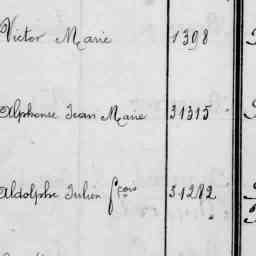 Victor Marie 1398
Alphonse Jean Marie 31315
Aldolphe Julien fçois 31282